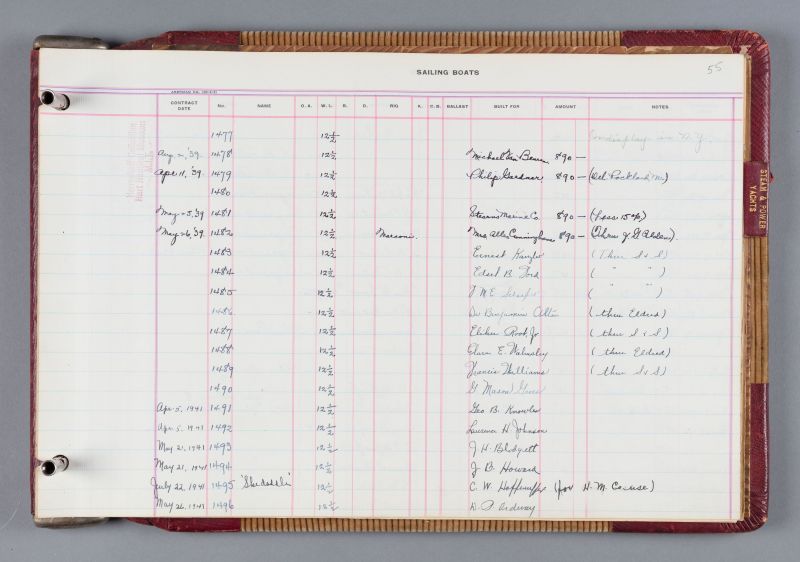 SAILING BOATS
55
CONTRACT DATE No. NAME O.A. W.L. B. D. RIG K. C.B. BALLAST BUILT FOR AMOUNT NOTES
1477 12½ on display in N.Y.
Aug 21, '39 1478 12½ Michael Van Beuren $90 —
Apr. 11, '39 1479 12½ Philip Gardner $90 — (Del Rockland Me)
1480 12½
May 25, 39 1481 12½ Stearns Marine Co. $90 — (Less 15%)
May 26, '39 1482 12½ Marconi Mrs Allan Cunningham $90 — (Thru J. G. Alden).
1483 12½ Ernest (Thru S & S)
1484 12½ Edsel B. Ford ( " " )
1485 12½ ( " " )
1486 12½ Dr Benjamin (thru Eldred)
1487 12½ Elihu Root, Jr (thru S & S)
1488 12½ E. Walmsley (thru Eldred)
1489 12½ Francis Williams (thru S & S)
1490 12½ G Mason
Apr 5, 1941 1491 12½ Geo B. Knowles
Apr 5, 1941 1492 12½ Laurence H Johnson
May 21, 1941 1493 12½ J H Blodgett
May 21, 1941 1494 12½ J. B. Howard
July 22, 1941 1495 12½ C. W. (for H. M.
May 26, 1941 1496 12½ Ordway
STEAM & POWER YACHTS